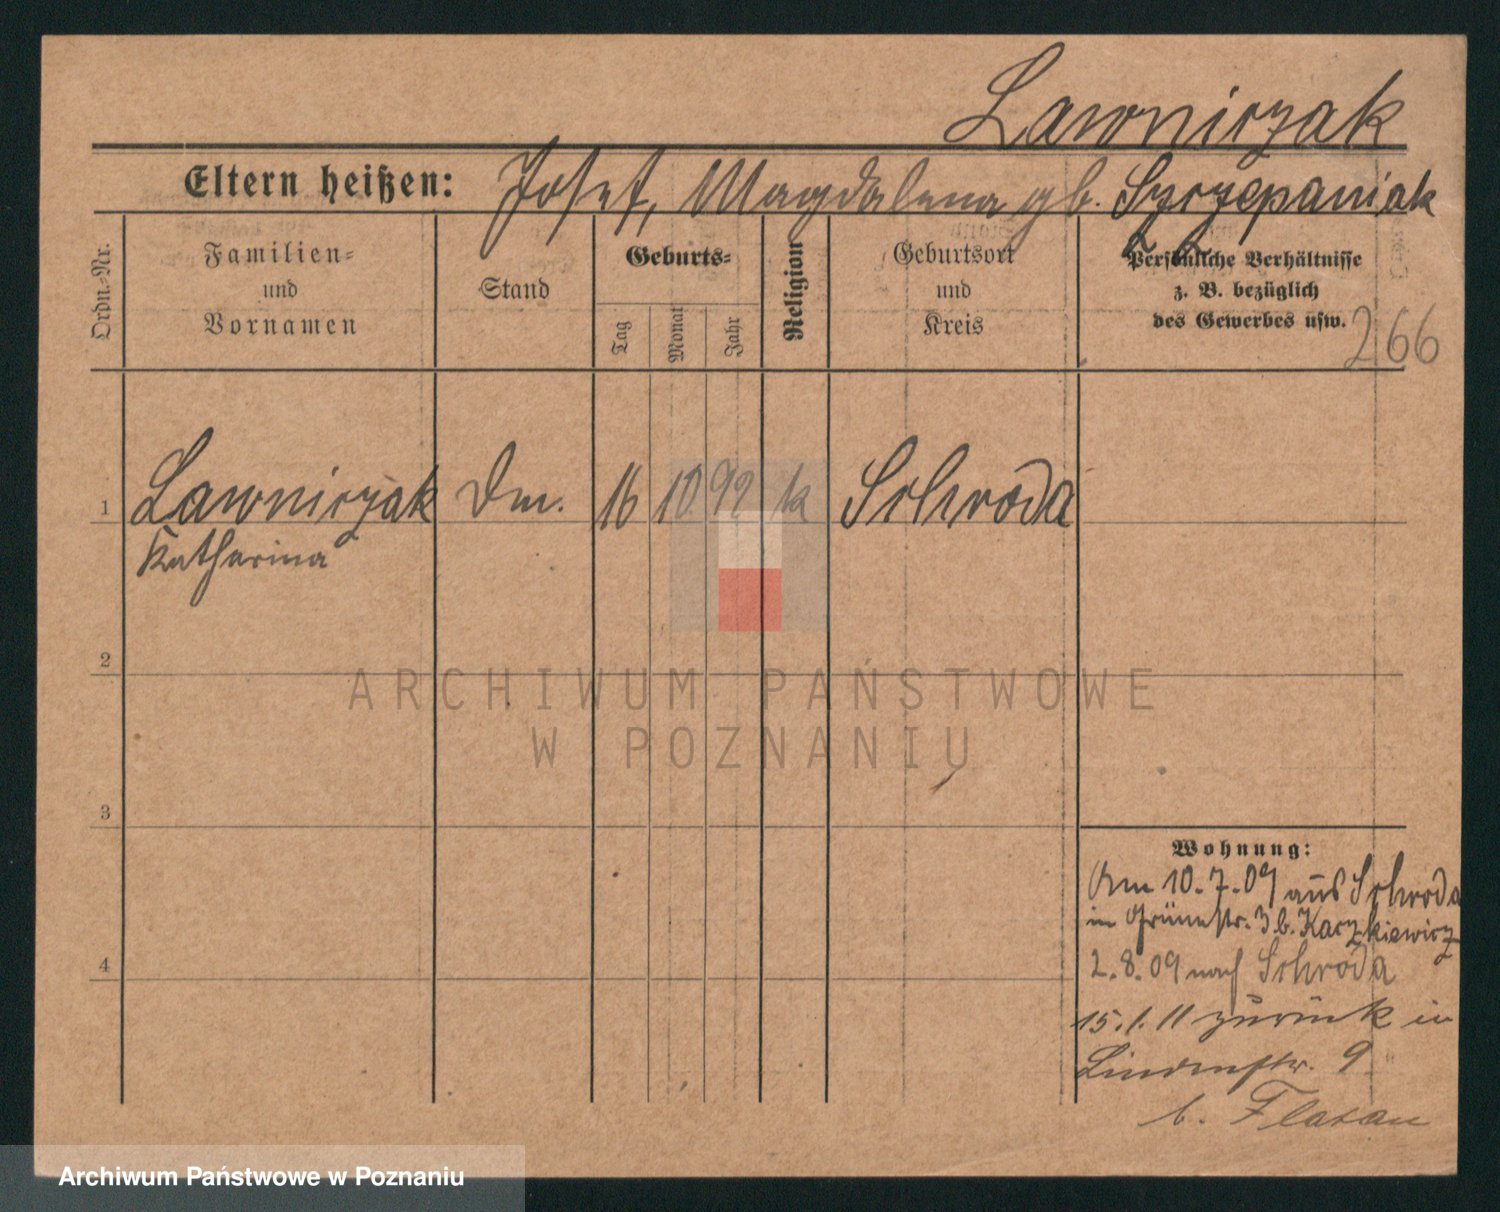 Lawniczak
Eltern heißen: Josef, Magdalena gb. Szczepaniak
Ordn.-Nr.
Familien-
und
Vornamen
Stand
Geburts-
Tag
Monat
Jahr
Religion
Geburtsort
und
Kreis
Persönliche Verhältnisse
z. B. bezüglich
des Gewerbes usw.
266
1 Lawniczak Dm. 16 10 92 k Schroda
Katharina
2
3
4
Wohnung:
Am 10.7.09 aus Schroda
in Grünestr. 3 b. Karzkiewicz
2.8.09 nach Schroda
15.1.11 zurück in
Lindenstr. 9
b. Flatau
ARCHIWUM PAŃSTWOWE
W POZNANIU
Archiwum Państwowe w Poznaniu